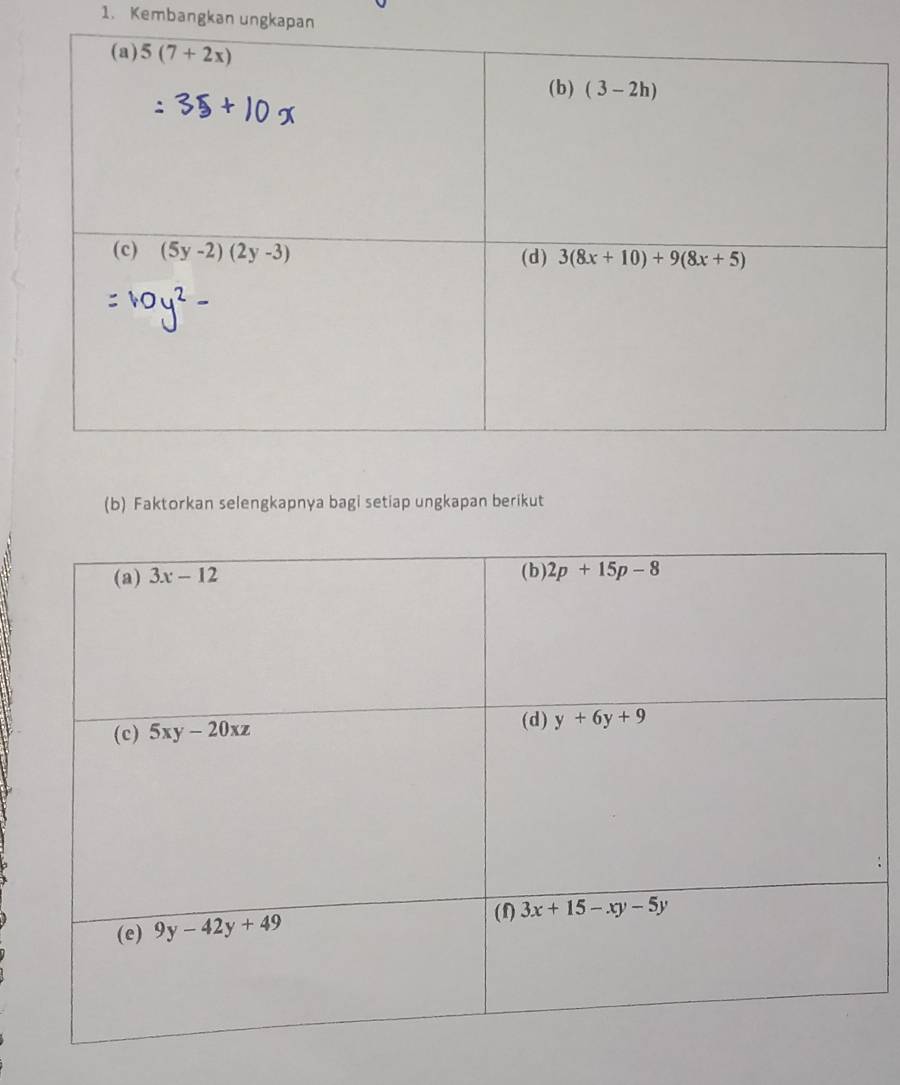 1. Kembangkan ungkapan
(a) 5 (7 + 2x)
= 35 + 10x
(b) ( 3 – 2h)
(c) (5y -2) (2y -3)
= 10y² -
(d) 3(8x + 10) + 9(8x + 5)
(b) Faktorkan selengkapnya bagi setiap ungkapan berikut
(a) 3x – 12
(b)2p + 15p – 8
(c) 5xy – 20xz
(d) y + 6y + 9
(e) 9y – 42y + 49
(f) 3x + 15 – xy – 5y